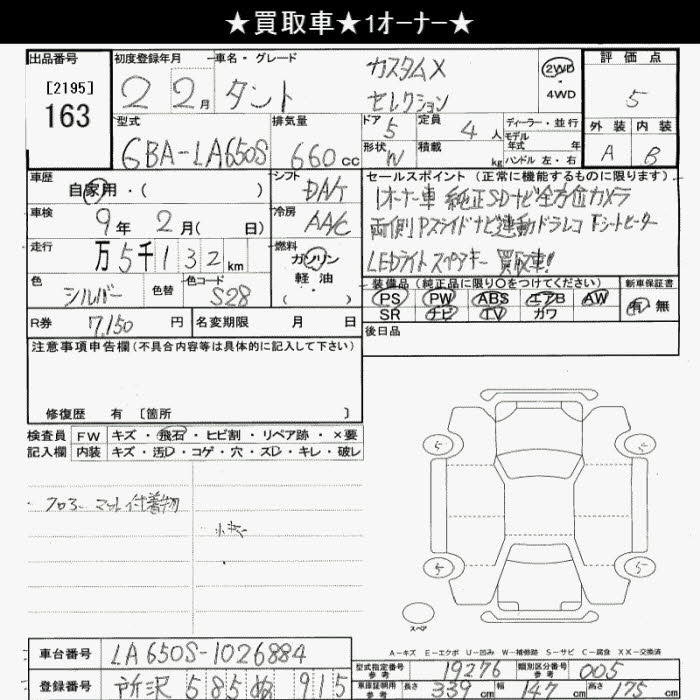 ★買取車★1ｵｰﾅｰ★
出品番号
[2195]
163
初度登録年月
22月
車名・グレード
タント
カスタムX
セレクション
2WD
・
4WD
評価点
5
外装 内装
A B
型式
6BA-LA650S
排気量
660cc
ドア
5
定員
4人
形状
W
積載
kg
ディーラー・並行
モデル
年式 年
ハンドル 左・右
車歴
自家用・( )
車検
9年2月( 日)
走行
万5千132km
色
シルバー
色替
色コード
S28
R券
7,150円
名変期限 月 日
シフト
DAT
冷房
AAC
燃料
ガソリン
・
軽油
( )
セールスポイント (正常に機能するものに限ります)
1オーナー車 純正SDナビ全方位カメラ
両側Pスライドナビ連動ドラレコ Fシートヒーター
LEDライト スペアキー 買取車!
装備品(純正品に限り〇をつけてください)
PS PW ABS エアB AW
SR ナビ TV カワ
新車保証書
有・無
後日品
注意事項申告欄(不具合内容等は具体的に記入して下さい)
修復歴 有 [箇所 ]
検査員
記入欄
FW キズ・飛石・ヒビ割・リペア跡・×要
内装 キズ・汚D・コゲ・穴・スD・キレ・破レ
フロアー マット付着物
小キズ
5 5
5 5
スペア
A－キズ E－エクボ U－凹み W－補修跡 S－サビ C－腐食 XX－交換済
車台番号
LA650S-1026884
登録番号
所沢 585 ぬ 915
型式指定番号
参考
19276
類別区分番号
参考
005
車庫証明用
参考
長さ 339cm 幅 147cm 高さ 175cm